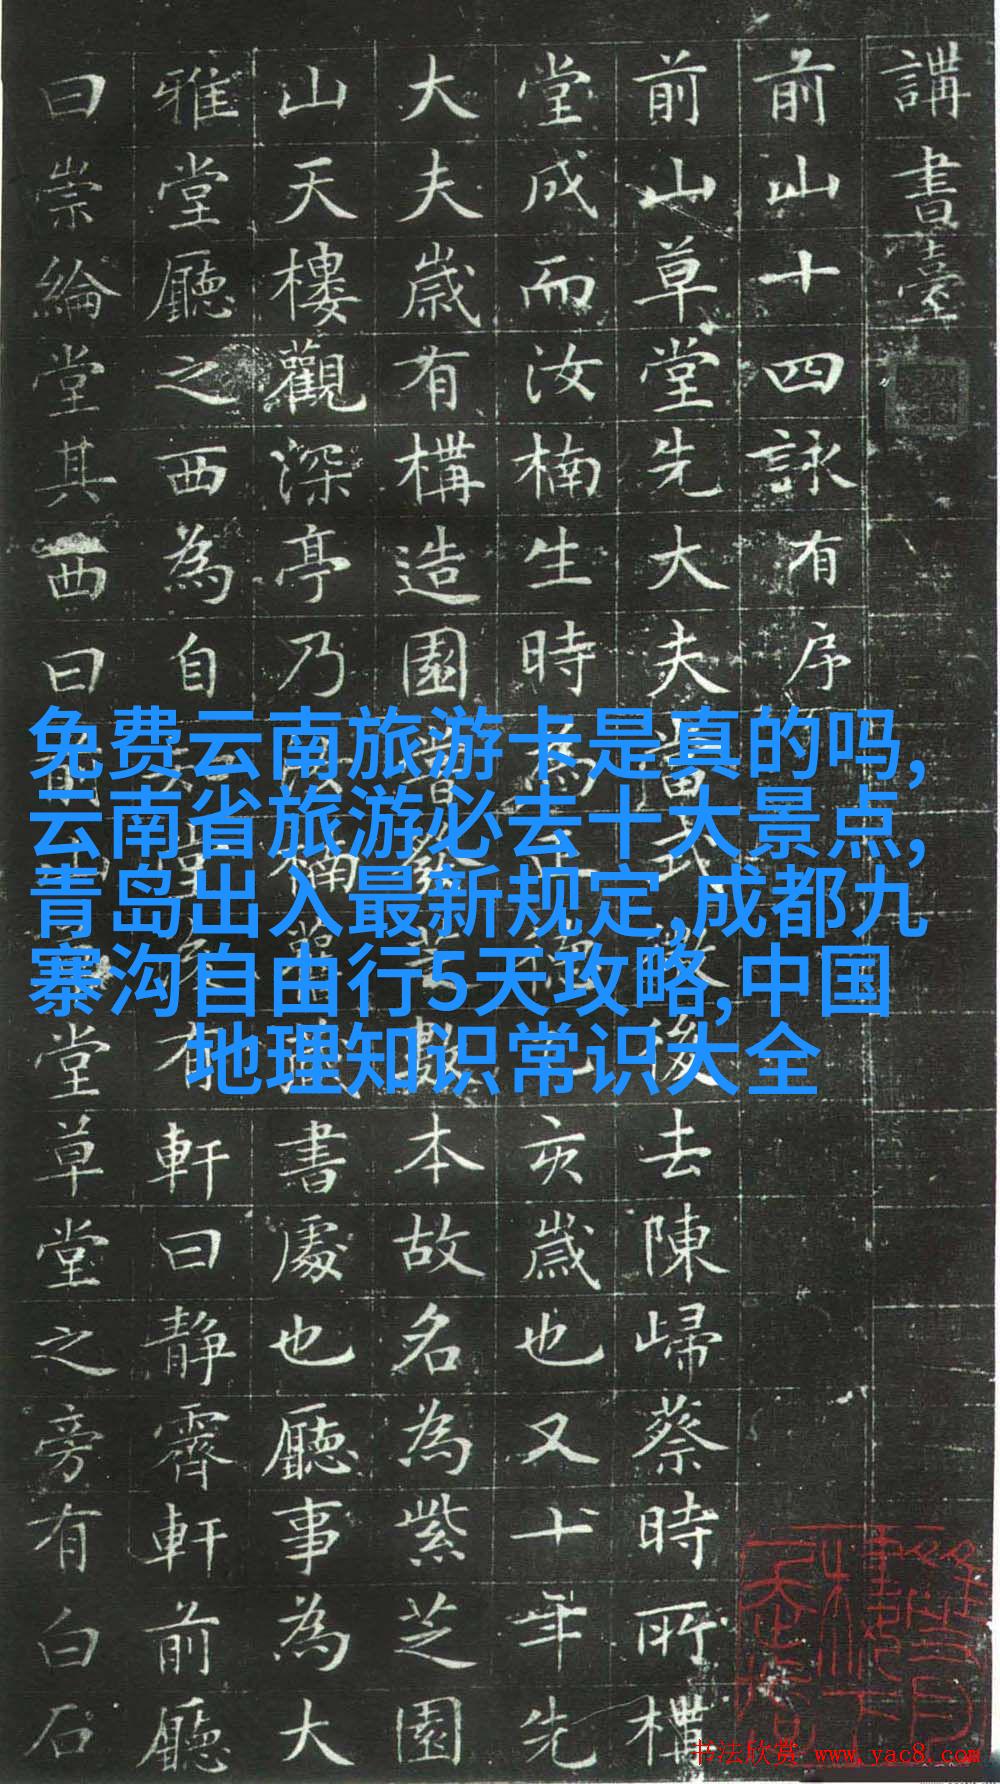 講書臺
前山十四詠有序
前山草堂先大夫當後去陳歸蔡時所構
堂成而汝楠生時為亥歲也又十年先
大夫歲有構造園昔發芝數本故名為紫芝園
山天樓觀深亭乃楠書處也廳事為大
雅堂廳之西為自有軒曰靜霽軒前廳
曰崇綸堂其西曰堂草堂之旁有白石
免费云南旅游卡是真的吗,
云南省旅游必去十大景点,
青岛出入最新规定,成都九
寨沟自由行5天攻略,中国
地理知识常识大全
书法欣赏 www.yac8.com